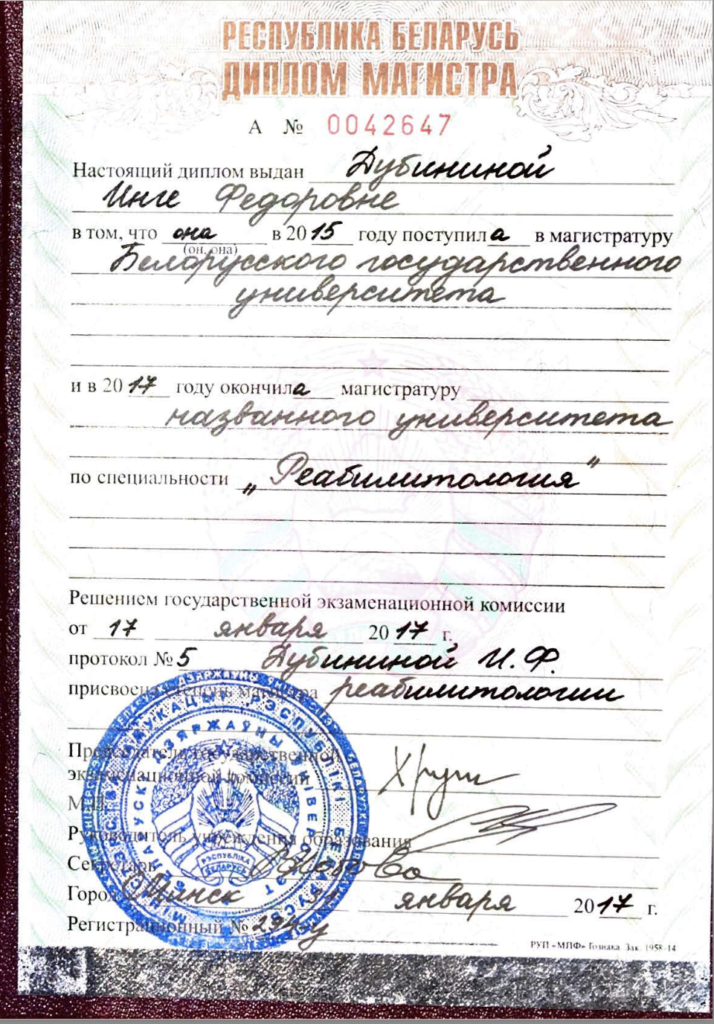 РЕСПУБЛИКА БЕЛАРУСЬ
ДИПЛОМ МАГИСТРА
А № 0042647
Настоящий диплом выдан Дубининой
Инге Федоровне
в том, что она в 2015 году поступила в магистратуру
(он, она)
Белорусского государственного
университета
и в 2017 году окончила магистратуру
названного университета
по специальности „Реабилитология"
Решением государственной экзаменационной комиссии
от 17 января 2017 г.
протокол № 5 Дубининой И.Ф.
присвоена степень магистра реабилитологии
Председатель государственной
экзаменационной комиссии
М.П.
Руководитель учреждения образования
Секретарь
Город Минск января 2017 г.
Регистрационный №
РЭСПУБЛІКА
БЕЛАРУСЬ
РУП «МПФ» Гознака. Зак. 1958-14